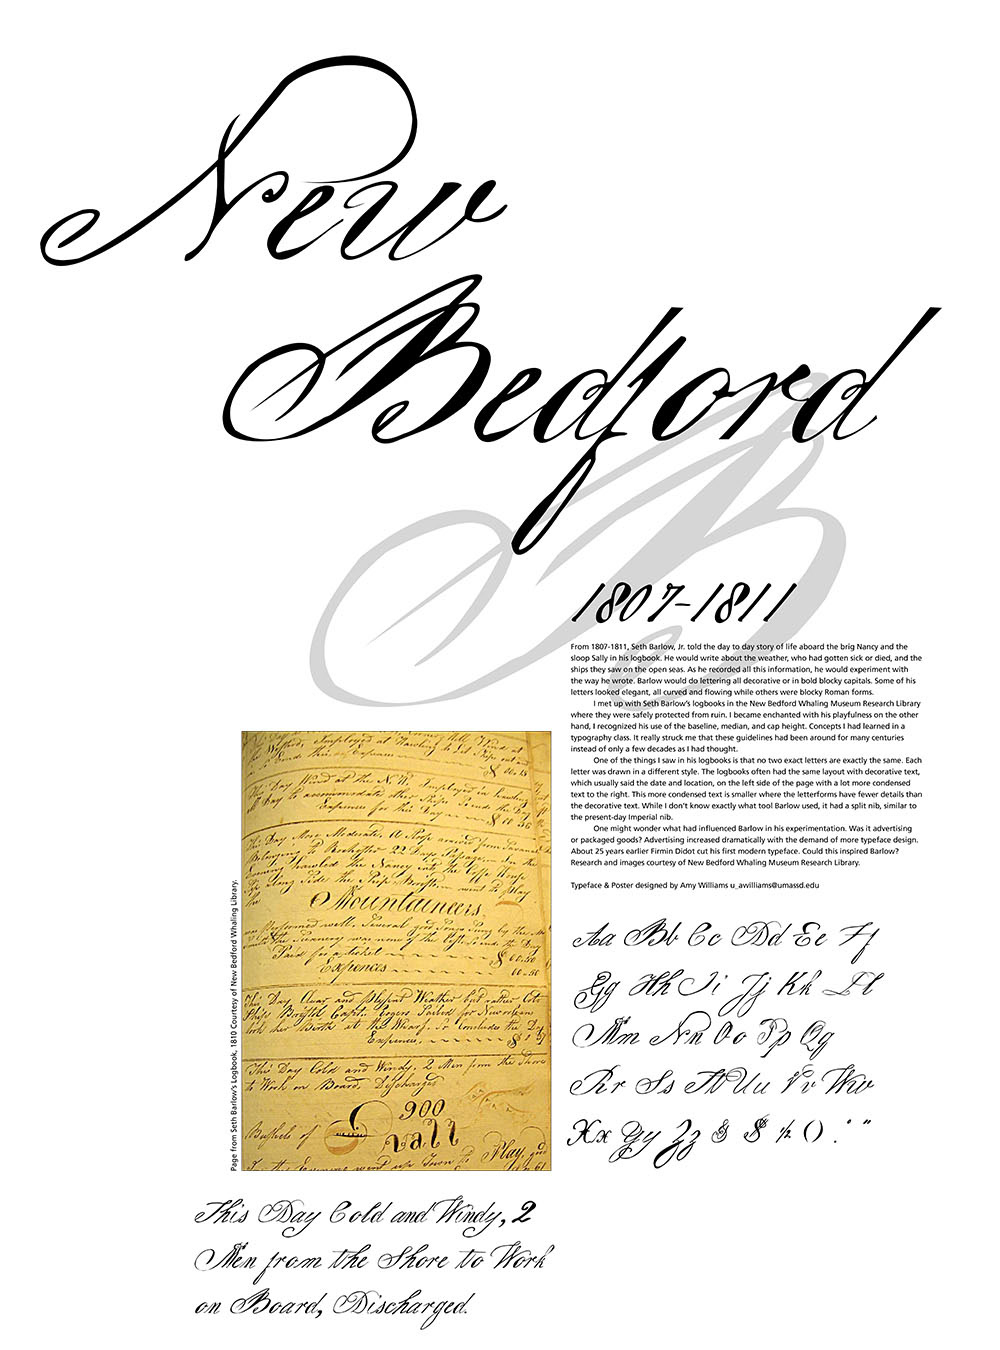 New
Bedford
1807-1811
From 1807-1811, Seth Barlow, Jr. told the day to day story of life aboard the brig Nancy and the
sloop Sally in his logbook. He would write about the weather, who had gotten sick or died, and the
ships they saw on the open seas. As he recorded all this information, he would experiment with
the way he wrote. Barlow would do lettering all decorative or in bold blocky capitals. Some of his
letters looked elegant, all curved and flowing while others were blocky Roman forms.
I met up with Seth Barlow's logbooks in the New Bedford Whaling Museum Research Library
where they were safely protected from ruin. I became enchanted with his playfulness on the other
hand, I recognized his use of the baseline, median, and cap height. Concepts I had learned in a
typography class. It really struck me that these guidelines had been around for many centuries
instead of only a few decades as I had thought.
One of the things I saw in his logbooks is that no two exact letters are exactly the same. Each
letter was drawn in a different style. The logbooks often had the same layout with decorative text,
which usually said the date and location, on the left side of the page with a lot more condensed
text to the right. This more condensed text is smaller where the letterforms have fewer details than
the decorative text. While I don't know exactly what tool Barlow used, it had a split nib, similar to
the present-day Imperial nib.
One might wonder what had influenced Barlow in his experimentation. Was it advertising
or packaged goods? Advertising increased dramatically with the demand of more typeface design.
About 25 years earlier Firmin Didot cut his first modern typeface. Could this inspired Barlow?
Research and images courtesy of New Bedford Whaling Museum Research Library.
Typeface & Poster designed by Amy Williams u_awilliams@umassd.edu
B
Page from Seth Barlow's Logbook, 1810 Courtesy of New Bedford Whaling Library.
Wind at the N W Employed in
Day to accommodate the Ship So ends this Day
Expences for this Day $ 00 56
This Day More Moderate. A Ship arrived from
Belonging to Rochester 22 Days Passage. In the
Evening Hawled the Nancy into the Coffe House
Slip along Side the Ship went to Play
the
Mountaineers
was performed well. Several good Songs Sung by the
Paid for a ticket $ 00.50
Expences 00.50
This Day Clear and Plesent Weather but rather Col
Ships Capt. Rogers Sailed for New orleans
took her Birth at the Wharf. So Concludes the Day
Expences, $
This Day Cold and Windy. 2 Men from the Shore
to Work on Board. Discharged
900
Bushels of Salt
Play, and
In the Evening went up Town to
Aa Bb Cc Dd Ee Ff
Gg Hh Ii Jj Kk Ll
Mm Nn Oo Pp Qq
Rr Ss Tt Uu Vv Ww
Xx Yy Zz & $ ½ () . ' "
This Day Cold and Windy, 2
Men from the Shore to Work
on Board, Discharged.